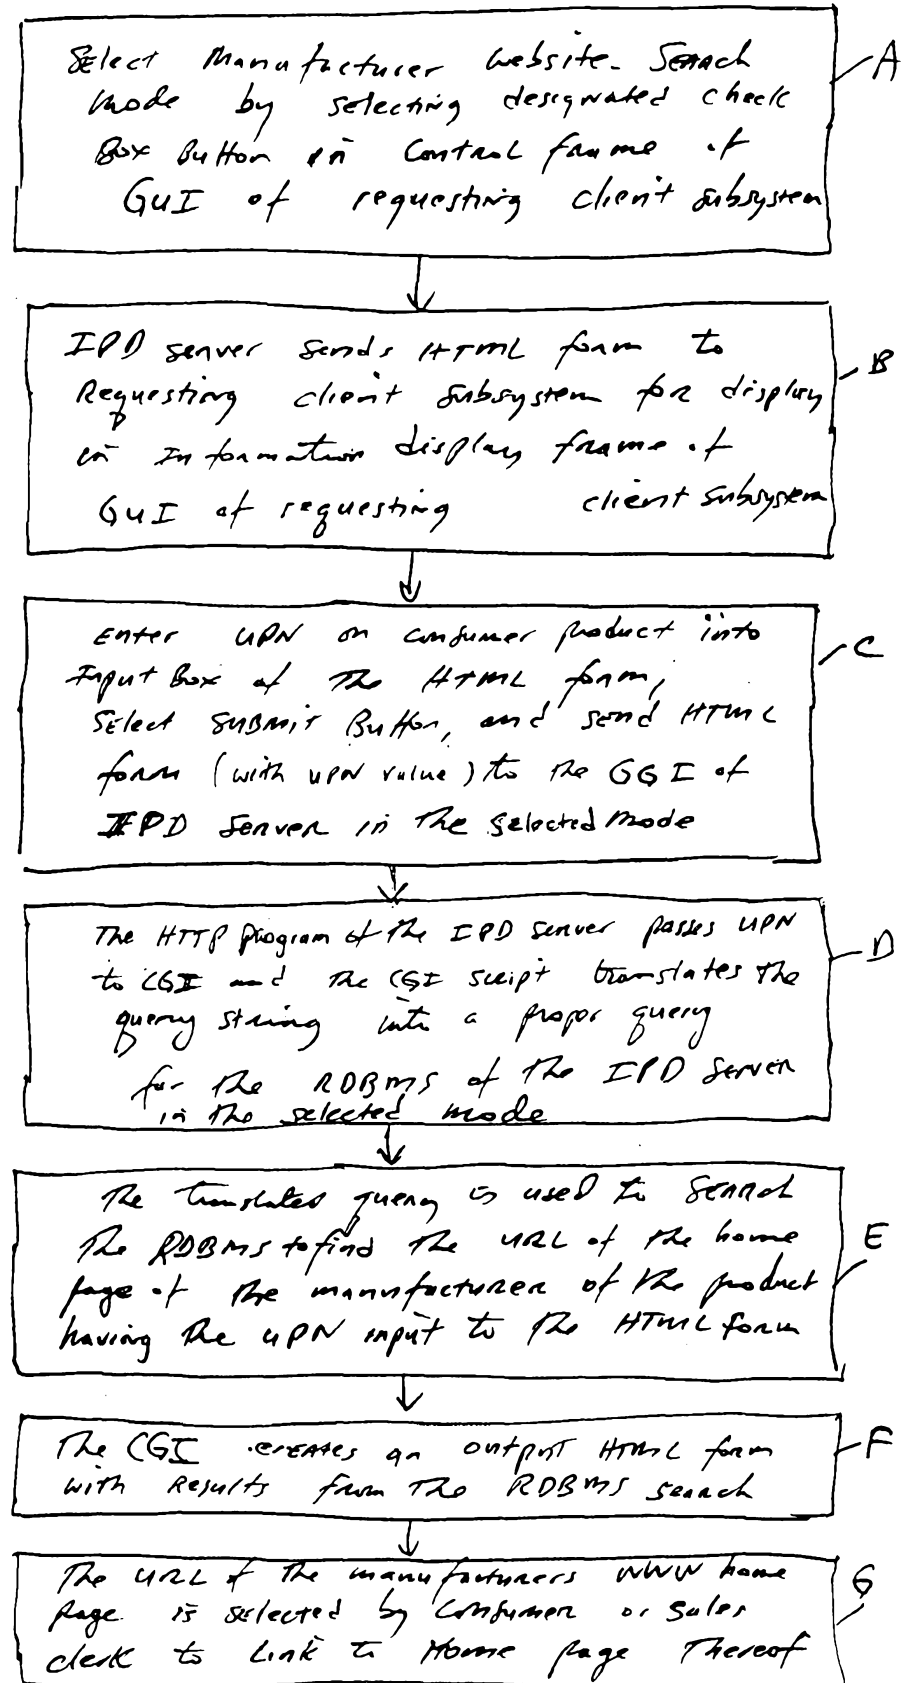 Select Manufacturer Website-Search
Mode by selecting designated check
Box Button in Control frame of
GUI of requesting client subsystem
A
IPD server sends HTML form to
Requesting client subsystem for display
in Information display frame of
GUI of requesting client subsystem
B
Enter UPN on consumer product into
Input Box of The HTML form,
Select SUBMIT Button, and send HTML
form (with UPN value) to the GGI of
IPD Server in The selected Mode
C
The HTTP program of the IPD server passes UPN
to CGI and the CGI script translates the
query string into a proper query
for the RDBMS of the IPD Server
in the selected mode
D
The translated query is used to Search
The RDBMS to find the URL of the home
page of the manufacturer of the product
having the UPN input to the HTML form
E
The CGI creates an output HTML form
with Results from The RDBMS search
F
The URL of the manufacturers WWW home
page is selected by Consumer or Sales
clerk to Link to Home page Thereof
G